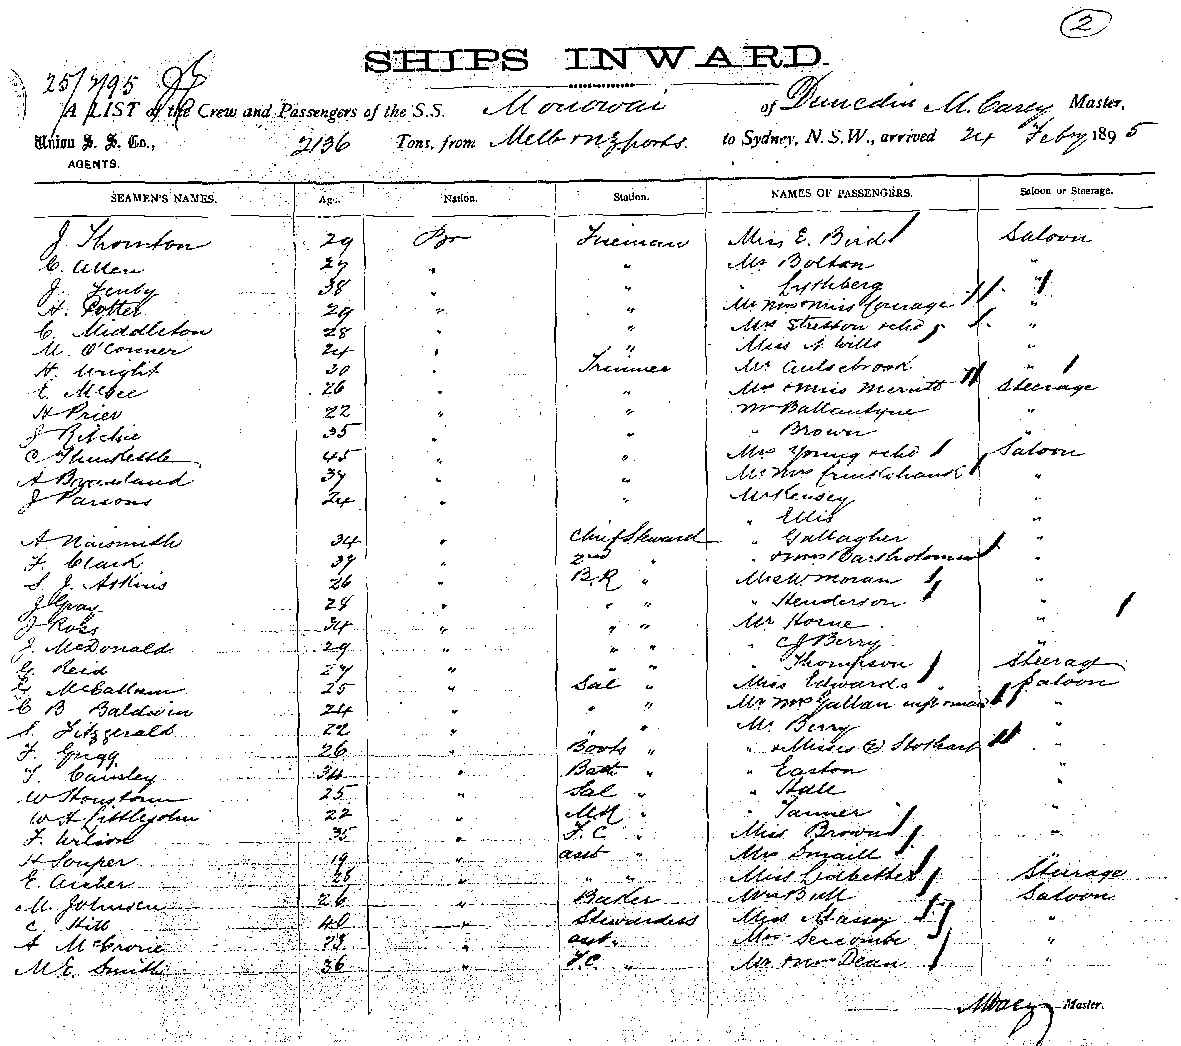 2
SHIPS INWARD.
25/2/95
A LIST of the Crew and Passengers of the S.S. Monowai of Dunedin M. Carey Master,
Union S. S. Co., 2136 Tons, from Melb & NZ ports. to Sydney, N.S.W., arrived 24 Feby 1895
AGENTS.
SEAMEN'S NAMES. Age. Nation. Station. NAMES OF PASSENGERS. Saloon or Steerage.
J. Thornton 29 Br Fireman Miss E. Bird Saloon
C. Allen 27 " " Mr Bolton "
J. Fenby 38 " " " Cythberg "
H. Potter 29 " " Mr Mrs & Miss Courage "
C. Middleton 28 " " Mrs Stretton & chd "
M. O'Conner 24 " " Miss A Wills "
H. Wright 30 " Trimmer Mr Aulsebrook "
E. McGee 26 " " Mrs & Miss Merritt Steerage
H Prier 22 " " Mr Ballantyne "
J Ritchie 35 " " " Brown "
C Thurkettle 45 " " Mrs Young & chd Saloon
A 37 " " Mr Mrs Cruickshank "
J Parsons 24 " " Mr Kensey "
" Ellis "
A Naismith 34 " Chief Steward " Gallagher "
F. Clark 39 " 2nd " " & Mrs Bartholomew "
S. J. Askins 26 " B.R " Mrs W Moran "
J Gray 28 " " " " Henderson "
J Ross 34 " " " Mr Horne "
J. McDonald 29 " " " " C J Berry "
G. Reid 27 " " " " Thompson Steerage
McCallum 25 " Sal " Miss Edwards Saloon
C B Baldwin 24 " " " Mr Mrs Gallan inft & maid "
S. Fitzgerald 22 " " Mr Berry "
F. Grigg 26 " Boots " " & Misses (2) Stothart "
T. Causley 34 " Bath " " Easton "
W Houstoun 25 " Sal " " Hall "
W H Littlejohn 22 " MR " " Tanner "
F. Wilson 35 " F.C " Miss Brown "
H Souper 19 " asst " Mrs Smaill "
E. Archer 28 " " " Miss Ledbetter Steerage
M. Johnson 26 " Baker Mrs Bull Saloon
C Hill 40 " Stewardess Miss Massey "
A McCrone 28 " asst " Mrs Seccombe "
M E. Smith 36 " F.C. " Mr & Mrs Dean "
M Carey Master.